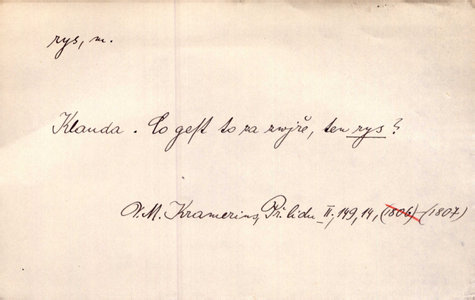 rys, m.
Klauda. Co geſt to za zwjře, ten rys?
V. M. Kramerius, Př. lidu II, 149, 14, (1806) (1807)